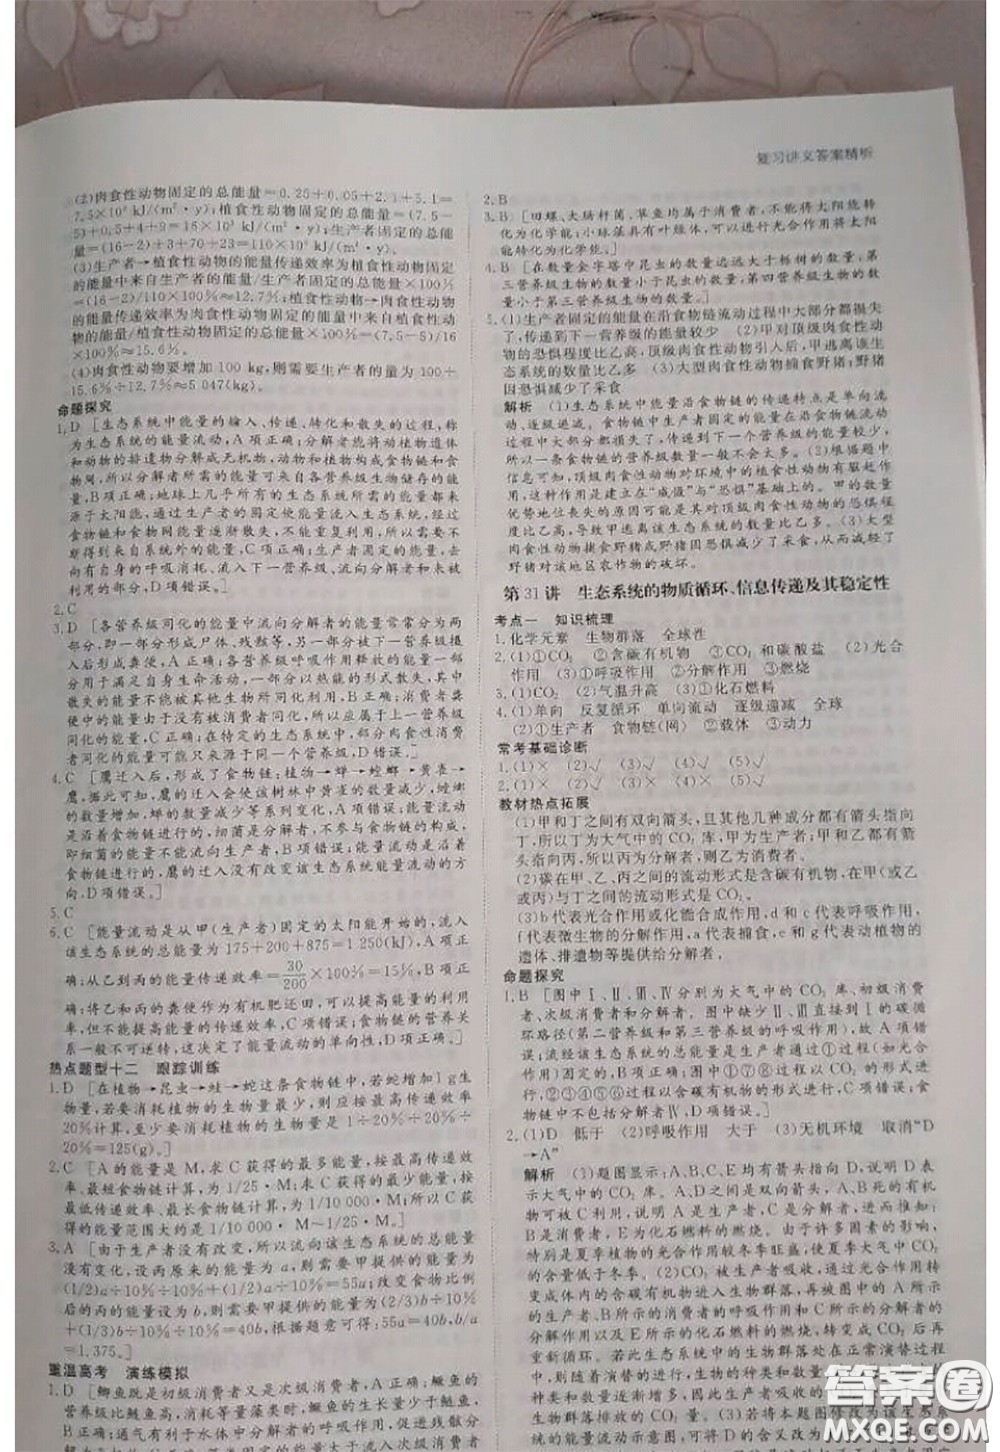 复习讲义答案精析
(2)肉食性动物固定的总能量=0.25+0.05+2.1+5.1=
7.5×10³ kJ/(m²·y);植食性动物固定的总能量=(7.5-
5)+0.5+4+9=16×10³ kJ/(m²·y);生产者固定的总能
量=(16-2)+3+70+23=110×10³ kJ/(m²·y)。
(3)生产者→植食性动物的能量传递效率为植食性动物固定
的能量中来自生产者的能量/生产者固定的总能量×100%
=(16-2)/110×100%≈12.7%;植食性动物→肉食性动物
的能量传递效率为肉食性动物固定的能量中来自植食性动物
的能量/植食性动物固定的总能量×100%=(7.5-5)/16
×100%≈15.6%。
(4)肉食性动物要增加100 kg,则需要生产者的量为100÷
15.6%÷12.7%≈5 047(kg)。
命题探究
1.D [生态系统中能量的输入、传递、转化和散失的过程,称
为生态系统的能量流动,A项正确;分解者能将动植物遗体
和动物的排遗物分解成无机物,动物和植物构成食物链和食
物网,所以分解者所需的能量可来自各营养级生物储存的能
量,B项正确;地球上几乎所有的生态系统所需的能量都来
源于太阳能,通过生产者的固定使能量流入生态系统,经过
食物链和食物网能量逐渐散失,不能重复利用,所以需要不
断得到来自系统外的能量,C项正确;生产者固定的能量,去
向有自身的呼吸消耗、流入下一营养级、流向分解者和未被
利用的部分,D项错误。]
2.C
3.D [各营养级同化的能量中流向分解者的能量常常分为两
部分,即一部分形成尸体、残骸等,另一部分未被下一营养级
摄入,A正确;各营养级呼吸作用释放的能量一部
分用于满足自身生命活动,一部分以热能的形式散失,其中
热能是不能被其他生物同化利用,B正确;消费者粪
便中的能量由于没有被消费者同化,所以应属于上一营养级
同化的能量,C正确;在特定的生态系统中,部分肉食性消费
者同化的能量可能只来源于同一个营养级,D错误。]
4.C [鹰迁入后,形成了食物链:植物→蝉→螳螂→黄雀→
鹰,因此鹰的迁入会使该树林中黄雀的数量减少,螳螂
的数量增加,蝉的数量减少等系列变化,A项错误;能量流动
是沿着食物链进行的,细菌是分解者,不参与食物链的构成,
即细菌的能量不能流向生产者,B项错误;能量流动是沿着
食物链进行的,鹰的迁入没有改变该生态系统能量流动的方
向,D项错误。]
5.C
6.C [能量流动是从甲(生产者)固定的太阳能开始的,流入
该生态系统的总能量为175+200+875=1 250(kJ),A项正
确;从乙到丙的能量传递效率=30/200×100%=15%,B项正
确;将乙和丙的粪便作为有机肥还田,可以提高能量的利用
率,但不能提高能量的传递效率,C项错误;食物链的营养关
系一般不可逆转,这决定了能量流动的单向性,D项正确。]
热点题型十二 跟踪训练
1.D [在植物→昆虫→蛙→蛇这条食物链中,若蛇增加1 g生
物量,若要消耗植物的生物量最少,则应按最高传递效率
20%计算,至少要消耗植物的生物量是1÷20%÷20%÷
20%=125(g)。]
2.C [A的能量是M,求C获得的最多能量按最高传递效
率、最短食物链计算,为1/25·M;求C获得的最少能量,按
最低传递效率、最长食物链计算,为1/10 000·M,所以C的
能量范围大约为1/10 000·M~1/25·M。]
3.A [由于生产者没有改变,所以流向该生态系统的总能量
没有变化,设丙原来的能量为a,则需要甲提供的能量为
(1/2)a÷10%÷10%+(1/2)a÷10%=55a;改变食物比例
后的丙的能量设为b,则需要甲提供的能量为(2/3)b÷10%
+(1/3)b÷10%÷10%=40b,根据题意可得:55a=40b,b/a
=1.375。]
重温高考 演练模拟
1.D [鲫鱼既是初级消费者又是次级消费者;鳜鱼的
2.B
3.B [田螺、大肠杆菌、草鱼均属于消费者,不能将太阳能转
化为化学能;小球藻具有叶绿体,可以进行光合作用将太阳
能转化为化学能。]
4.B [在数量金字塔中昆虫的数量远远大于栎树的数量,第
三营养级生物的数量小于昆虫的数量,第四营养级生物的数
量小于第三营养级生物的数量。]
5.(1)生产者固定的能量在沿食物链流动过程中大部分都损失
了,传递到下一营养级的能量较少 (2)甲对顶级肉食性动
物的恐惧程度比乙高,顶级肉食性动物引入后,甲逃离该生
态系统的数量比乙多 (3)大型肉食性动物捕食野猪;野猪
因恐惧减少了采食
解析 (1)生态系统中能量沿食物链的传递是单向流
动、逐级递减的。食物链中生产者固定的能量在流动
过程中大部分都损失了,传递到下一个营养级的能量较少,
所以一条食物链的营养级数量一般不会太多。(2)根据题中
信息可知,顶级肉食性动物对环境中的植食性动物有驱赶作
用,这种作用是建立在“威慑”与“恐惧”基础上的。甲的数量
优势地位丧失的原因可能是其对顶级肉食性动物的恐惧程
度比乙高,导致甲逃离该生态系统的数量比乙多。(3)大型
肉食性动物捕食野猪或野猪因恐惧减少了采食,从而减轻了
野猪对该地区农作物的破坏。
第31讲 生态系统的物质循环、信息传递及其稳定性
考点一 知识梳理
1.化学元素 生物群落 全球性
2.(1)①CO₂ ②含碳有机物 ③CO₂和碳酸盐 (2)光合
作用 (3)①呼吸作用 ②分解作用 ③燃烧
3.(1)CO₂ (2)气温升高 (3)①化石燃料
4.(1)单向 反复循环 单向流动 逐级递减 全球
(2)①生产者 食物链(网) ②载体 ③动力
常考基础诊断
1.(1)× (2)√ (3)√ (4)× (5)√
2.(1)× (2)√ (3)× (4)√
教材热点拓展
(1)甲和丁之间有双向箭头,且其他几种成分都有箭头指向
丁,所以丁为大气中的CO₂库,甲为生产者;甲和乙都有箭
头指向丙,所以丙为分解者,则乙为消费者。
(2)碳在甲、乙、丙之间的流动形式是含碳有机物,在甲(或
乙或丙)与丁之间的流动形式是CO₂。
(3)b代表光合作用或化能合成作用,d和c代表呼吸作用,
f代表微生物的分解作用,a代表捕食,e和g代表动植物的
遗体、排遗物等提供给分解者。
命题探究
1.B [图中Ⅰ、Ⅱ、Ⅲ、Ⅳ分别为大气中的CO₂、初级消费
者、次级消费者和分解者。图中缺少Ⅱ、Ⅲ指向Ⅰ的碳循
环路径(第二营养级和第三营养级的呼吸作用),故A项错
误;流经该生态系统的总能量是生产者通过①过程固定的
太阳能,B项正确;图中①⑦⑧过程以CO₂的形式进行,
②③④⑤⑥过程以含碳有机物的形式进行,C项错误;食
物链中不包括分解者Ⅳ,D项错误。]
2.(1)D 低于 (2)呼吸作用 大于 (3)无机环境 取消“D
→A”
解析 (1)题图显示:A、B、C、E均有箭头指向D,说明D表
示大气中的CO₂库。A与D之间是双向箭头,A、B死的有机
物被C利用,说明A是生产者,C是分解者,进而推知:
B为消费者,E为化石燃料的燃烧。由于许多因素的影响,
特别是夏季植物的光合作用较冬季旺盛,使夏季大气中CO₂
的含量低于冬季。(2)CO₂被生产者吸收,通过光合作用转
变成体内的含碳有机物进入生物群落,可再由图中的A所示
的生产者、B所示的消费者的呼吸作用和C所示的分解者的
分解作用以及E所示的化石燃料的燃烧,转变成CO₂后
返回。如果此生态系统中的生物群落处在正常演替过程
的初期,一般来说,生物的种类和数量
种类和数量逐渐增加,
生物群落的量。(3)若将本题图修改为该生态系
统的能量流动图解,则D的含义改为
答案圈
MXQE.COM